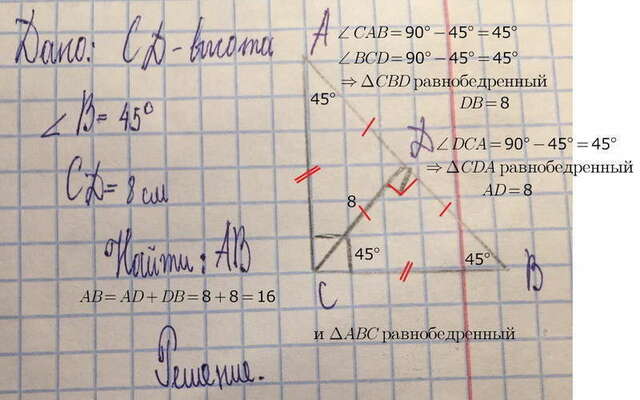 Дано: CD - высота
∠ B = 45°
CD = 8 см
Найти: AB
AB = AD + DB = 8 + 8 = 16
Решение.
A
45°
D
8
45°
45°
C
B
∠CAB = 90° − 45° = 45°
∠BCD = 90° − 45° = 45°
⇒ ΔCBD равнобедренный
DB = 8
∠DCA = 90° − 45° = 45°
⇒ ΔCDA равнобедренный
AD = 8
и ΔABC равнобедренный